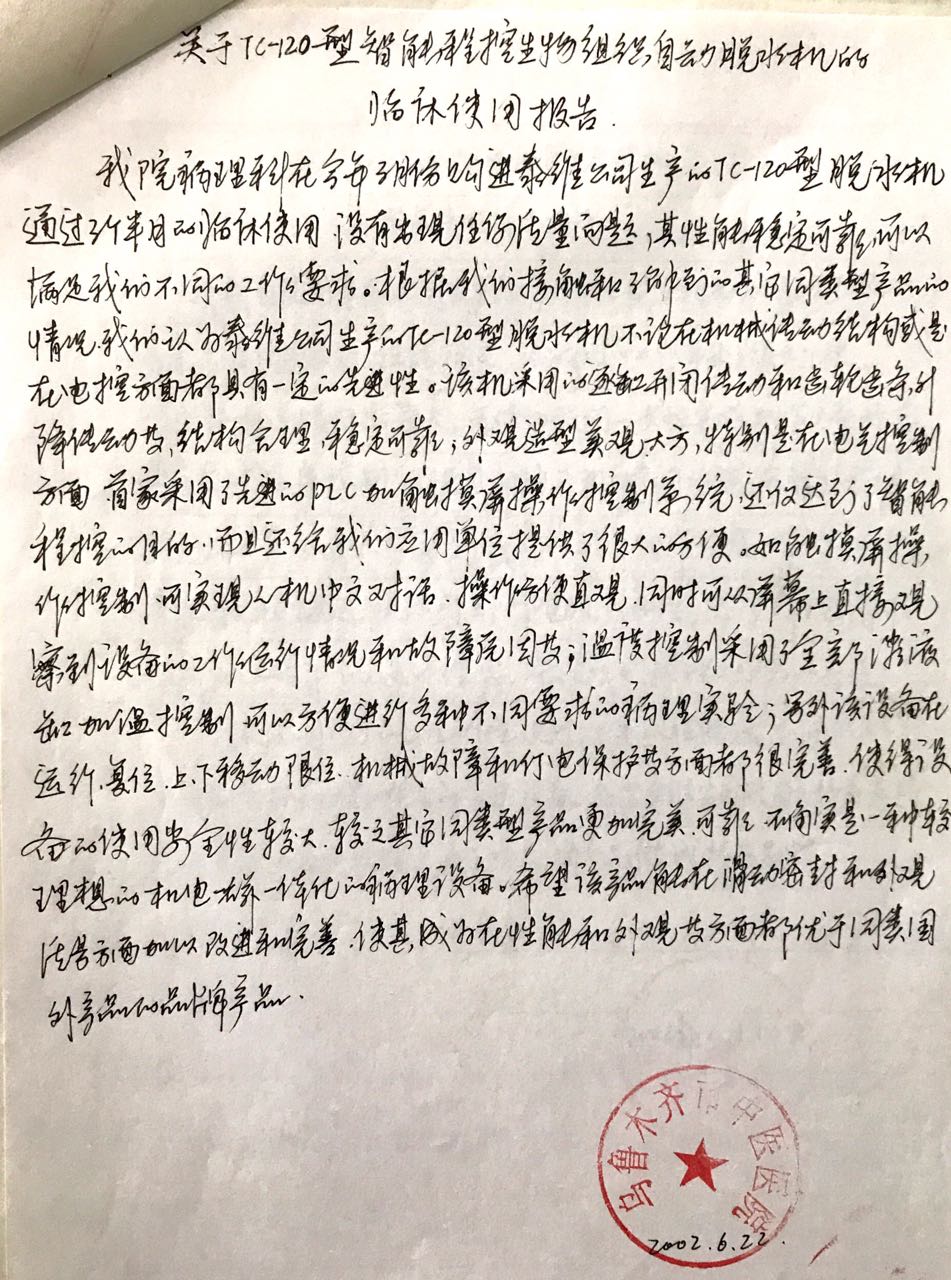 关于TC-120型智能程控生物组织自动脱水机的
临床使用报告.
我院病理科在今年3月份购进泰维公司生产的TC-120型脱水机
通过3个半月的临床使用.没有出现任何质量问题,其性能稳定可靠,可以
满足我们不同的工作要求。根据我们接触和了解到的其它同类型产品的
情况,我们认为泰维公司生产的TC-120型脱水机不论在机械传动结构或是
在电控方面都具有一定的先进性。该机采用的逐缸开闭传动和齿轮齿条升
降传动等,结构合理,稳定可靠;外观造型美观大方,特别是在电气控制
方面首家采用了先进的PLC加触摸屏操作控制系统,还仅达到了智能
程控的目的,而且还给我们应用单位提供了很大的方便。如触摸屏操
作控制,可实现人机中文对话.操作方便直观,同时可从屏幕上直接观
察到设备的工作运行情况和故障原因等;温度控制采用了全部溶液
缸加温控制可以方便进行多种不同要求的病理实验;另外该设备在
运行、复位、上、下移动限位、机械故障和停电保护等方面都很完善.使得设
备的使用安全性较大.较之其它同类型产品更加完美,可靠,不确实是一种较
理想的机电一体化的病理设备。希望该产品能在滑动密封和外观
质量方面加以改进和完善.使其成为在性能和外观等方面都优于同类国
外产品的品牌产品.
乌鲁木齐市中医医院
2002.6.22.